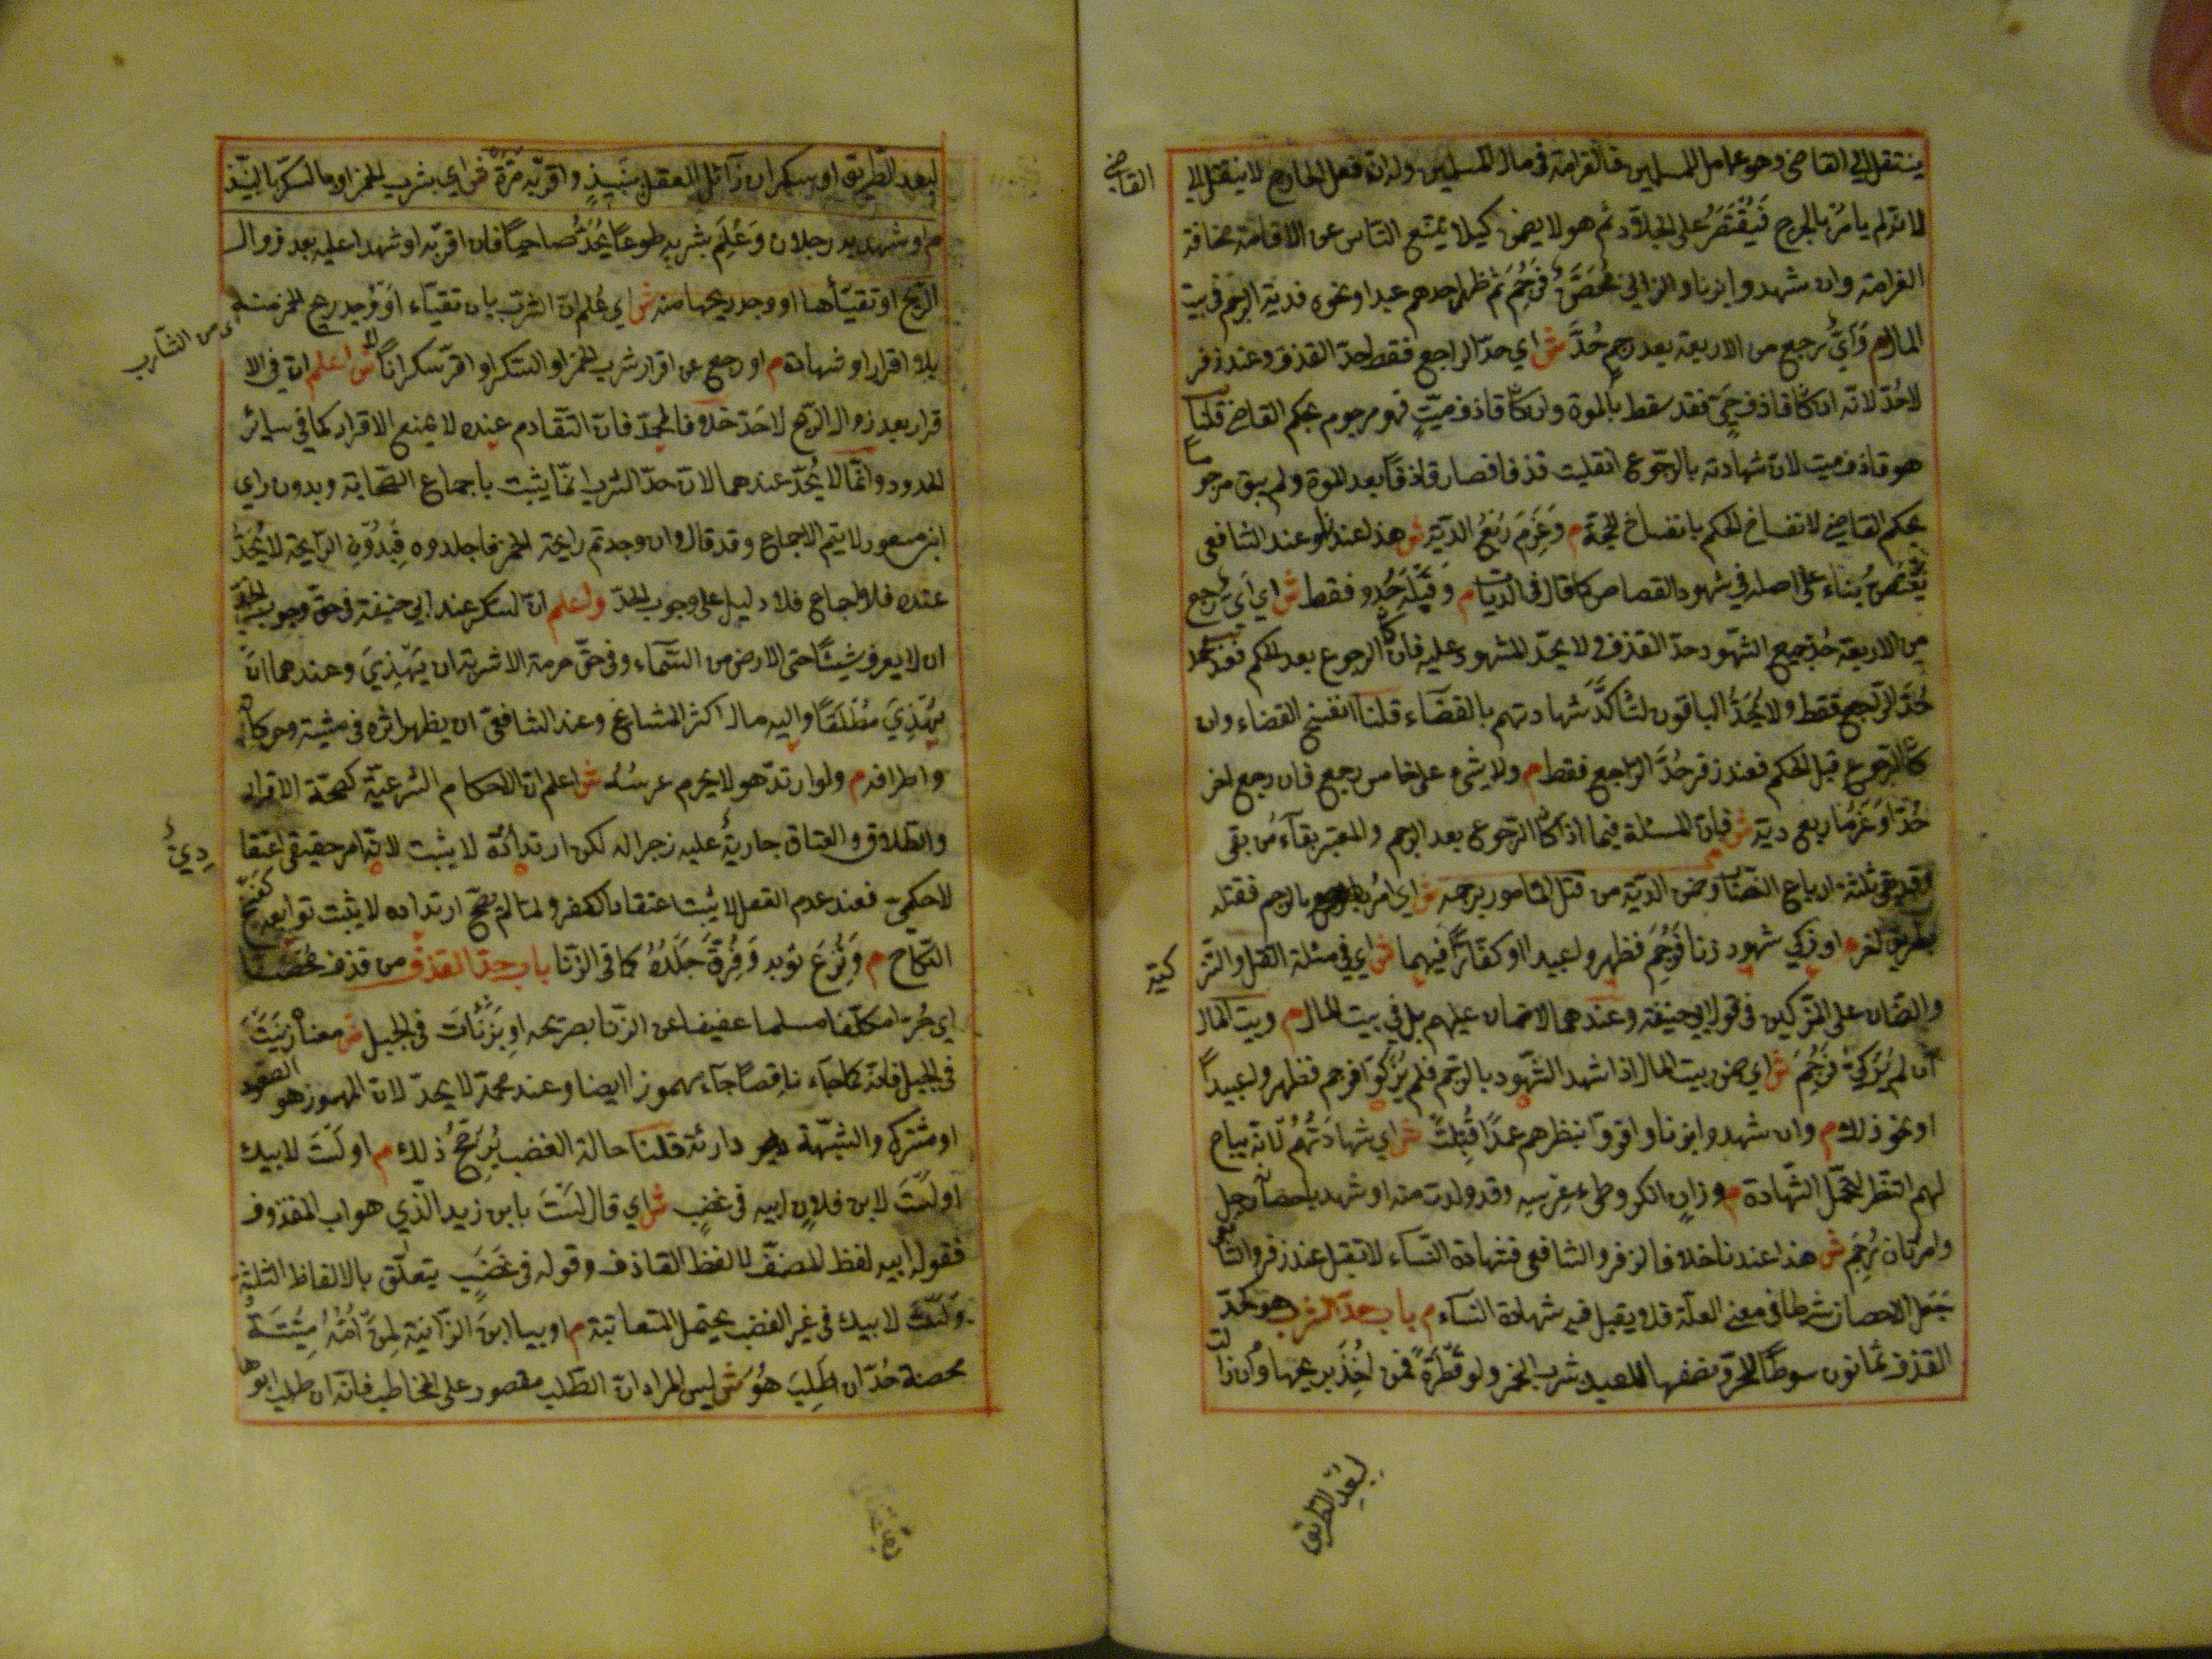 ينتقل الى القاضى وهو عامل للمسلمين فالغرامة فى مال المسلمين وله ان فعل الجارح لا ينتقل الى
القاضى
لانه لم يامره بالجرح فيقتصر على الجلاد ثم هو لا يضمن كيلا يمتنع الناس عن الاقامة مخافة
الغرامة وان شهدوا بزنا والزانى محصن فرجم ثم ظهر احدهم عبدا او نحوه فدية الرجم فى بيت
المال م واى رجع من الاربعة بعد رجم حد ش اي حد الراجع فقط حد القذف وعند زفر
لا حد لانه ان كان قاذف حي فقد سقط بالموت وان كان قاذف ميت فهو مرجوم بحكم القاضى قلنا
هو قاذف ميت لان شهادته بالرجوع انقلبت قذفا فصار قاذفا بعد الموت ولم يبق مرجوما
بحكم القاضى لانفساخ الحكم بانفساخ الحجة م وغرم ربع الدية ش هذا عندنا وعند الشافعى
يقتص بناء على اصله فى شهود القصاص كما قال فى الديات م وقبله حدوا فقط ش اي اى رجع
من الاربعة حد جميع الشهود حد القذف ولا يحد المشهود عليه فان كان الرجوع بعد الحكم فعند محمد
حد الراجع فقط ولا يحد الباقون لتاكد شهادتهم بالقضاء قلنا انفسخ القضاء وان
كان الرجوع قبل الحكم فعند زفر حد الراجع فقط م ولا شىء على خامس رجع فان رجع اخر
حدا وغرما ربع دية ش فان المسئلة فيما اذا كان الرجوع بعد الرجم والمعتبر بقاء من بقى
وقد بقى ثلثة ارباع النصاب وضمن الدية من قتل المامور برجمه ش اي امر بالرجم فقتله
بطريق اخر م او زكى شهود زنا فرجم فظهروا عبيدا او كفارا فيهما ش اي فى مسئلة القتل والتز
كية
والضمان على المزكين فى قول ابى حنيفة وعندهما لا ضمان عليهم بل فى بيت المال م وبيت المال
ان لم يزك فرجم ش اي ضمن بيت المال اذا شهد الشهود بالرجم فلم يزكوا فرجم فظهروا عبيدا
او نحو ذلك م وان شهدوا بزنا واقروا بنظرهم عمدا قبلت ش اي شهادتهم لانه يباح
لهم النظر لتحمل الشهادة م وزان انكر وطىء عرسه وقد ولدت منه او شهد باحصانه رجل
وامرتان رجم ش هذا عندنا خلافا لزفر والشافعى فشهادة النساء لا تقبل عند زفر والشافعى
تجعل الاحصان شرطا فى معنى العلة فلا يقبل فيه شهادة النساء م باب حد الشرب هو كحد
القذف ثمانون سوطا للحر ونصفها للعبد بشرب الخمر ولو قطرة فمن اخذ بريحها وان زالت
لبعد الطريق
لبعد الطريق او سكران زائل العقل بنبيذ واقر به مرة ش اي بشرب الخمر او بالسكر بالنبيذ
م او شهد به رجلان وعلم شربه طوعا يحد صاحيا فان اقر به او شهدا عليه بعد زوال
الريح او تقيأها او وجد ريحها منه ش اي علم ان الشرب بان تقيأ او وجد ريح الخمر منه
اى من الشارب
بلا اقرار او شهادة م او رجع عن اقرار شرب الخمر او السكر او اقر سكرانا لا ش اعلم ان فى الا
قرار بعد زوال الريح لا حد خلافا لمحمد فان التقادم عنده لا يمنع الاقرار كما فى سائر
الحدود وانما لا يحد عندهما لان حد الشرب انما يثبت باجماع الصحابة وبدون راى
ابن مسعود لا يتم الاجماع وقد قال وان وجدتم رايحة الخمر فاجلدوه فبدون الرايحة لا يحد
عنده فلا اجماع فلا دليل على وجوب الحد واعلم ان السكر عند ابى حنيفة فى حق وجوب الحد
ان لا يعرف شيئا حتى الارض من السماء وفى حق حرمة الاشربة ان يهذي وعندهما ان
يهذي مطلقا واليه مال اكثر المشايخ وعند الشافعى ان يظهر اثره فى مشيته وحركاته
واطرافه م ولو ارتد هو لا يحرم عرسه ش اعلم ان الاحكام الشرعية كصحة الاقرار
والطلاق والعتاق جارية عليه زجرا له لكن ارتداده لا يثبت لانه امر حقيقى اعتقا
دى
لا حكمى فعند عدم العقل لا يثبت اعتقاد الكفر ولما لم يصح ارتداده لا يثبت توابعه كفسخ
النكاح م ونزع ثوبه وفرق جلده كما فى الزنا باب حد القذف من قذف محصنا
اي حرا مكلفا مسلما عفيفا عن الزنا بصريحه او بزنأت فى الجبل ش معناه زنيت
فى الجبل فانه كما جاء ناقصا جاء مهموزا ايضا وعند محمد لا يحد لان المهموز هو الصعود
او مشترك والشبهة دارئة قلنا حالة الغضب يرجح ذلك م او لست لابيك
او لست لابن فلان ابيه فى غضب ش اي قال لست بابن زيد الذي هو اب المقذوف
فقوله ابيه لفظ المصنف لا لفظ القاذف وقوله فى غضب يتعلق بالالفاظ الثلثة
ولست لابيك فى غير الغضب يحتمل المعاتبة م او بيا ابن الزانية لمن امه ميتة
محصنة حد ان طلب هو ش ليس المراد ان الطلب مقصور على المخاطب فانه ان طلب ابوها